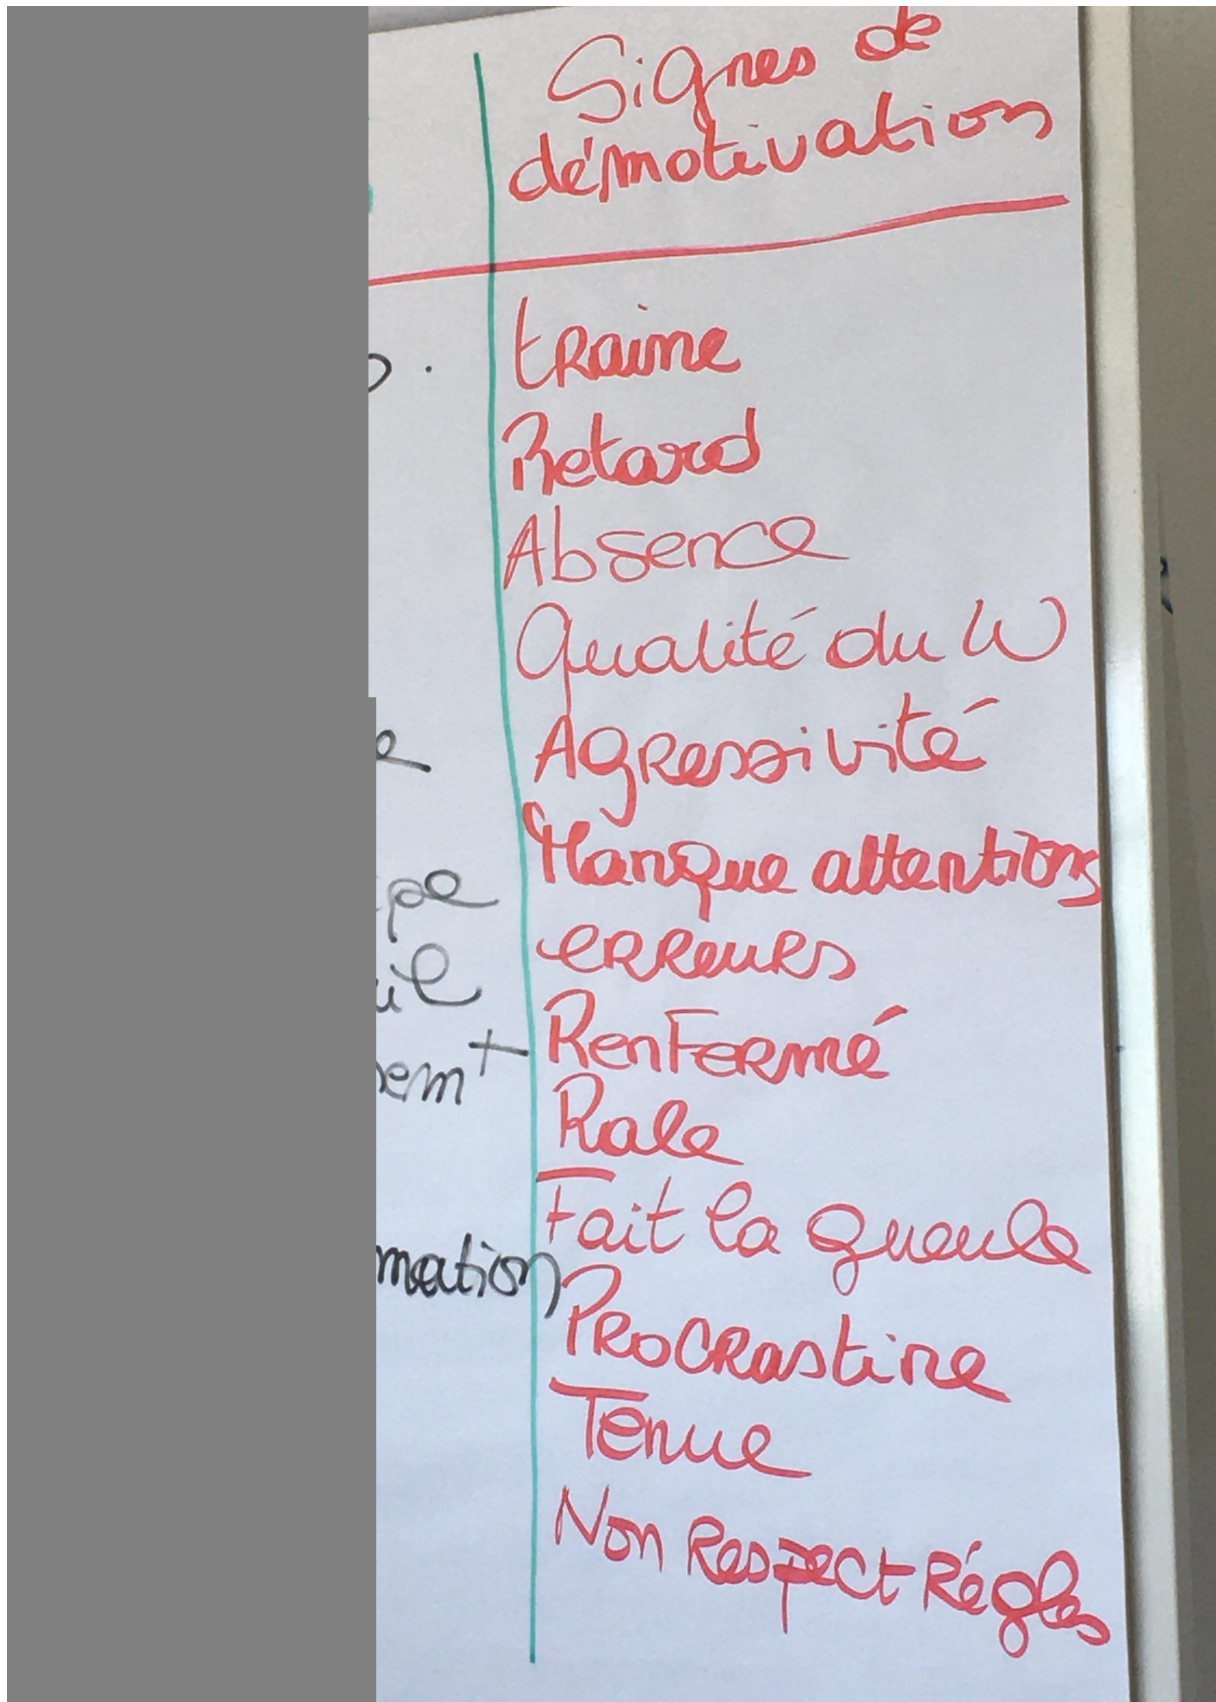 Signes de
démotivation
traine
Retard
Absence
Qualité du W
Agressivité
Manque attentions
erreurs
Renfermé
Rale
Fait la gueule
Procrastine
Tenue
Non Respect Régles